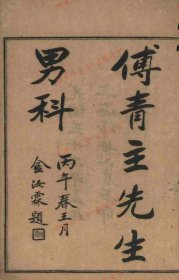 傅青主先生
男科
丙午春王月
金汝霖題